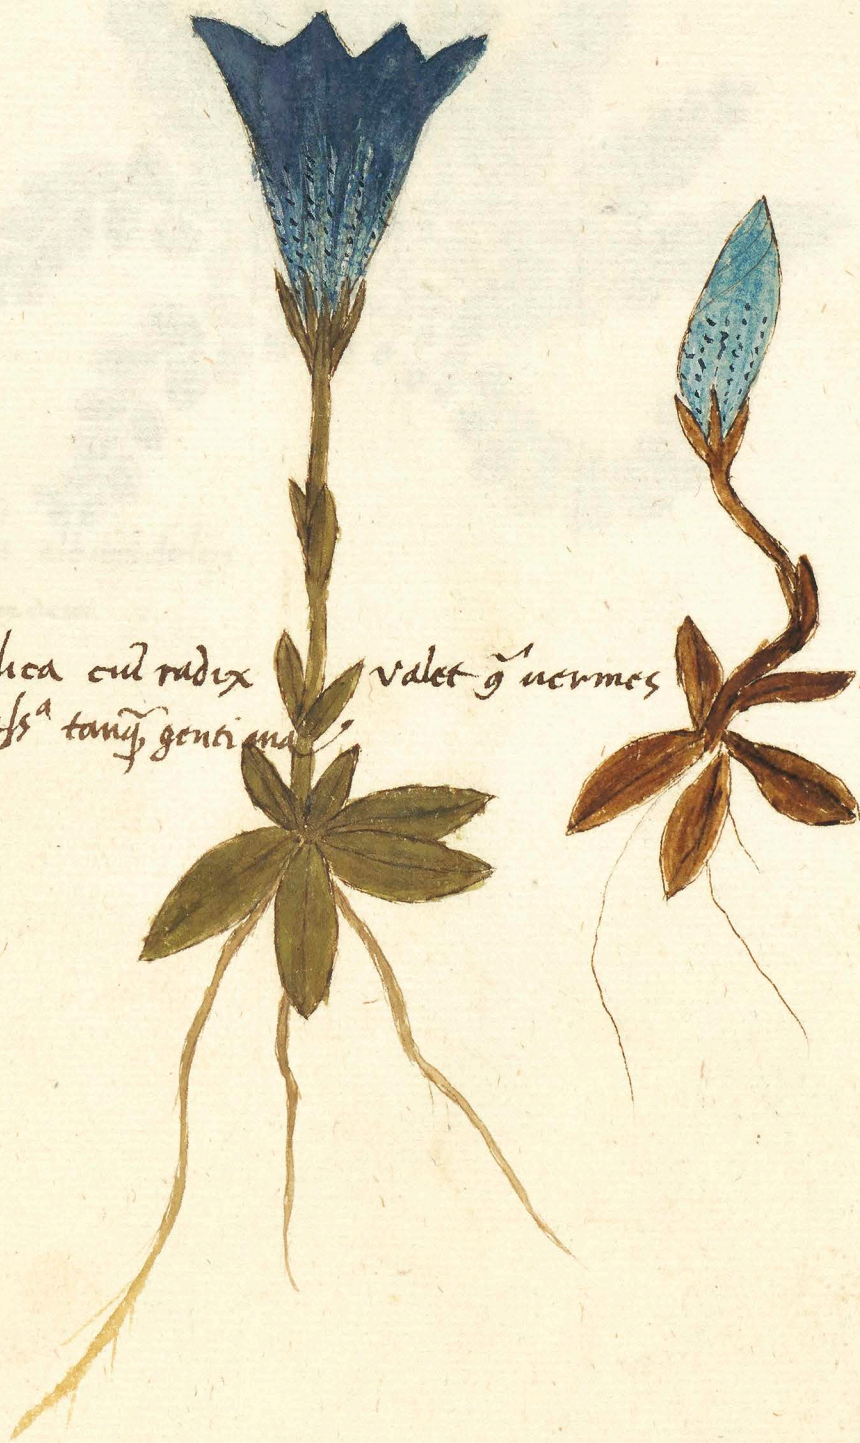 lica cui radix valet gͣ uermes
tanq̃ gentiana